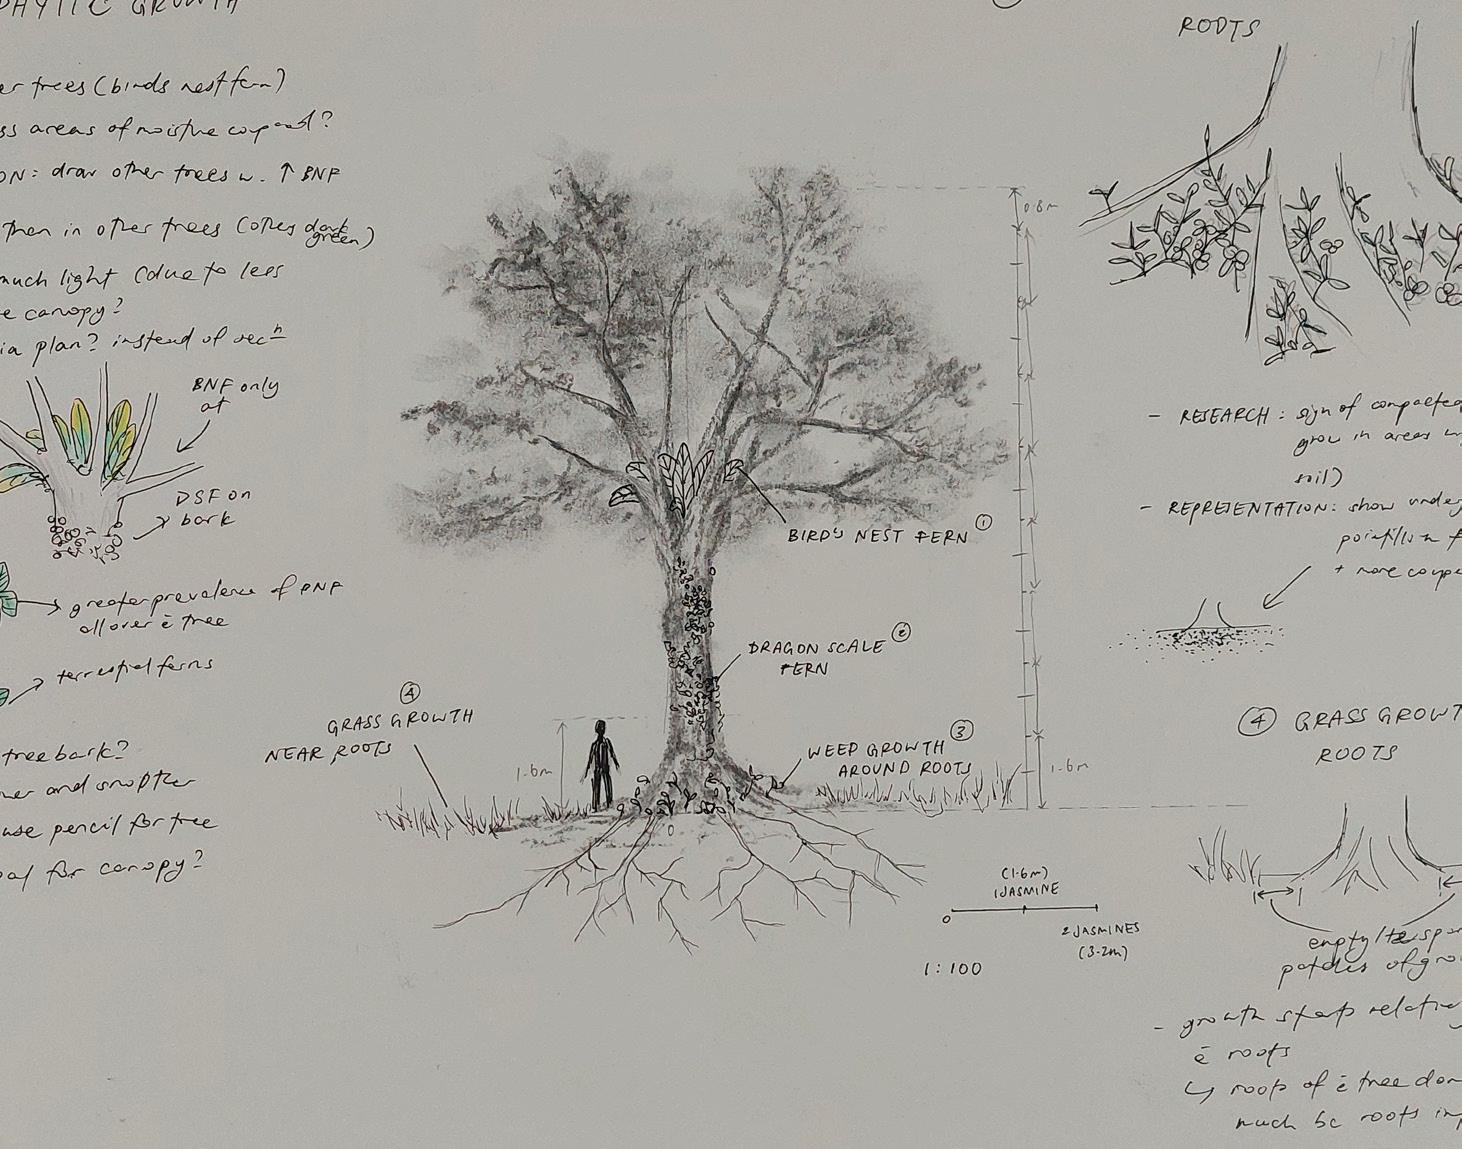 PHYTIC GROWTH
er trees (birds nest fern)
ss areas of moisture
ON: draw other trees w. ↑ BNF
then in other trees (others dark green)
much light (due to less
e canopy?
ia plan? instead of secⁿ
BNF only
at
DSF on
bark
greater prevalence of BNF
all over ē tree
terrestrial ferns
tree bark?
ner and smoother
use pencil for tree
oal for canopy?
④
GRASS GROWTH
NEAR ROOTS
1.6m
BIRD'S NEST FERN ①
DRAGON SCALE ②
FERN
WEED GROWTH ③
AROUND ROOTS
0.8m
1.6m
(1.6m)
1 JASMINE
0
2 JASMINES
(3.2m)
1:100
ROOTS
- RESEARCH: sign of compacted
grow in areas
soil)
- REPRESENTATION: show under
pointillism
+ more
④ GRASS GROWT
ROOTS
empty/
patches of gro
- growth stops relative
ē roots
↳ roots of ē tree don
much bc roots